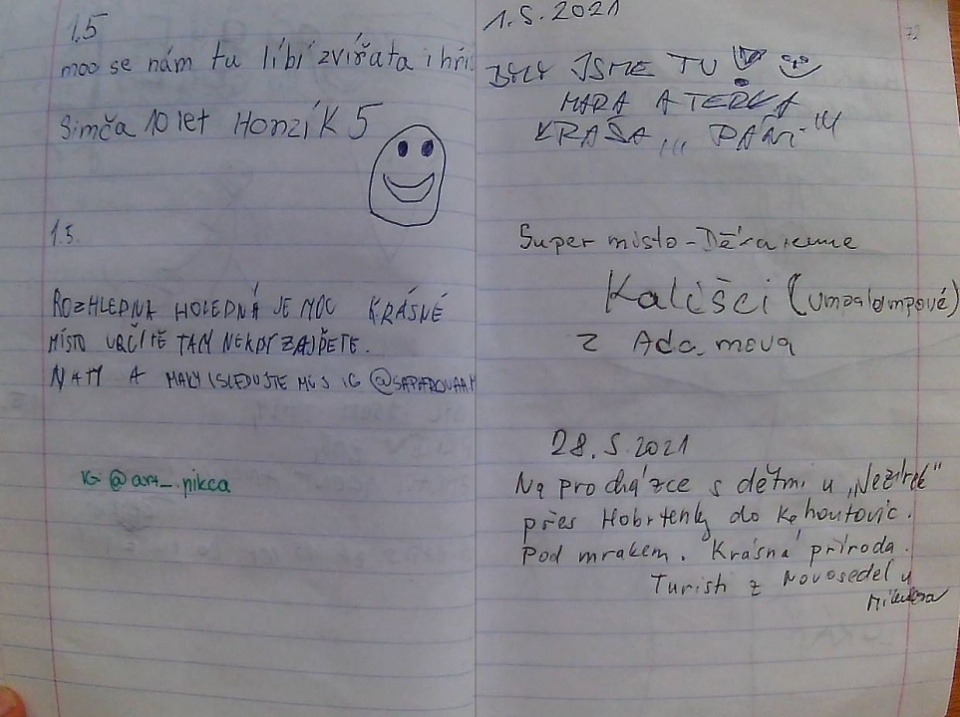 1.5
moc se nám tu líbí zvířata i hři
Simča 10 let Honzík 5
1.5.
ROZHLEDNA HOLEDNÁ JE MOC KRÁSNÉ
MÍSTO URČITĚ TAM NĚKDY ZAJDĚTE.
NATY A
IG @art_.nikca
72
1.5.2021
BYLY JSME TU!
MÁRA A TERKA
KRÁSA,,, PÁNI"!
Super místo - Děkujeme
Kališci (umpalumpové)
z Adamova
28.5.2021
Na procházce s dětmi u
přes Hobrtenky do Kohoutovic.
Pod mrakem. Krásná příroda.
Turisti z Novosedel u
Mikulova